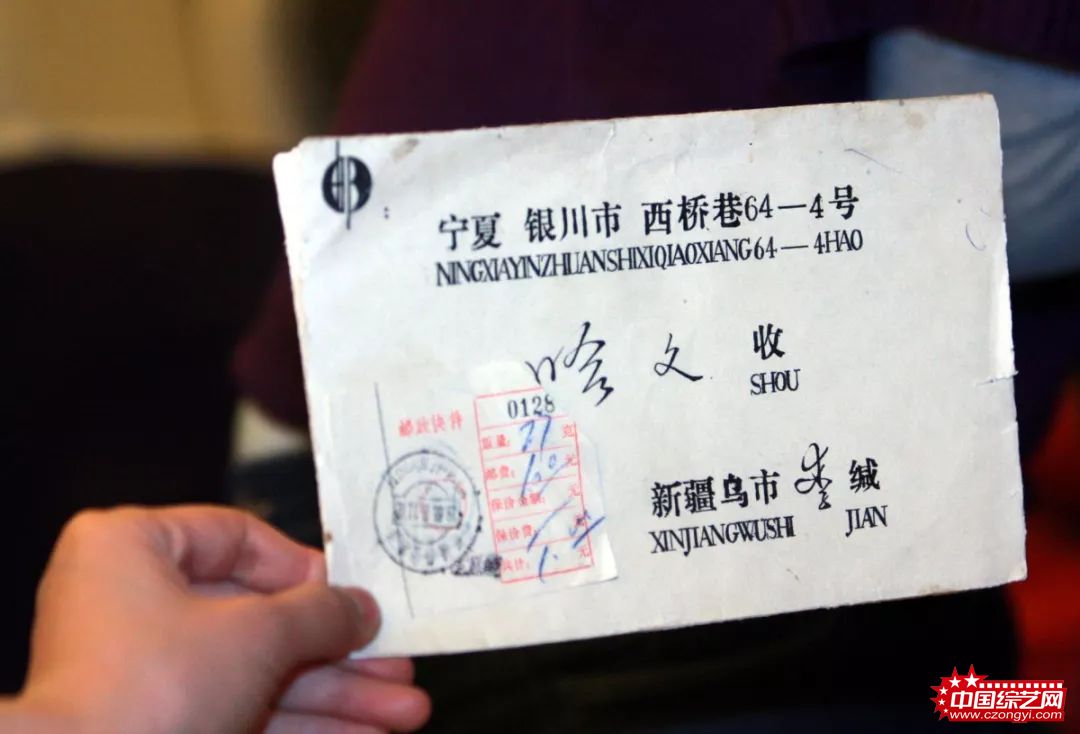 宁夏 银川市 西桥巷64—4号
NINGXIAYINZHUANSHIXIQIAOXIANG64—4HAO
哈文 收
SHOU
0128
邮政快件
重量: 21 克
邮费: 元
保价金额: 元
保价费:
共计: 元
新疆乌市 李 缄
XINJIANGWUSHI JIAN
中国综艺网
www.czongyi.com